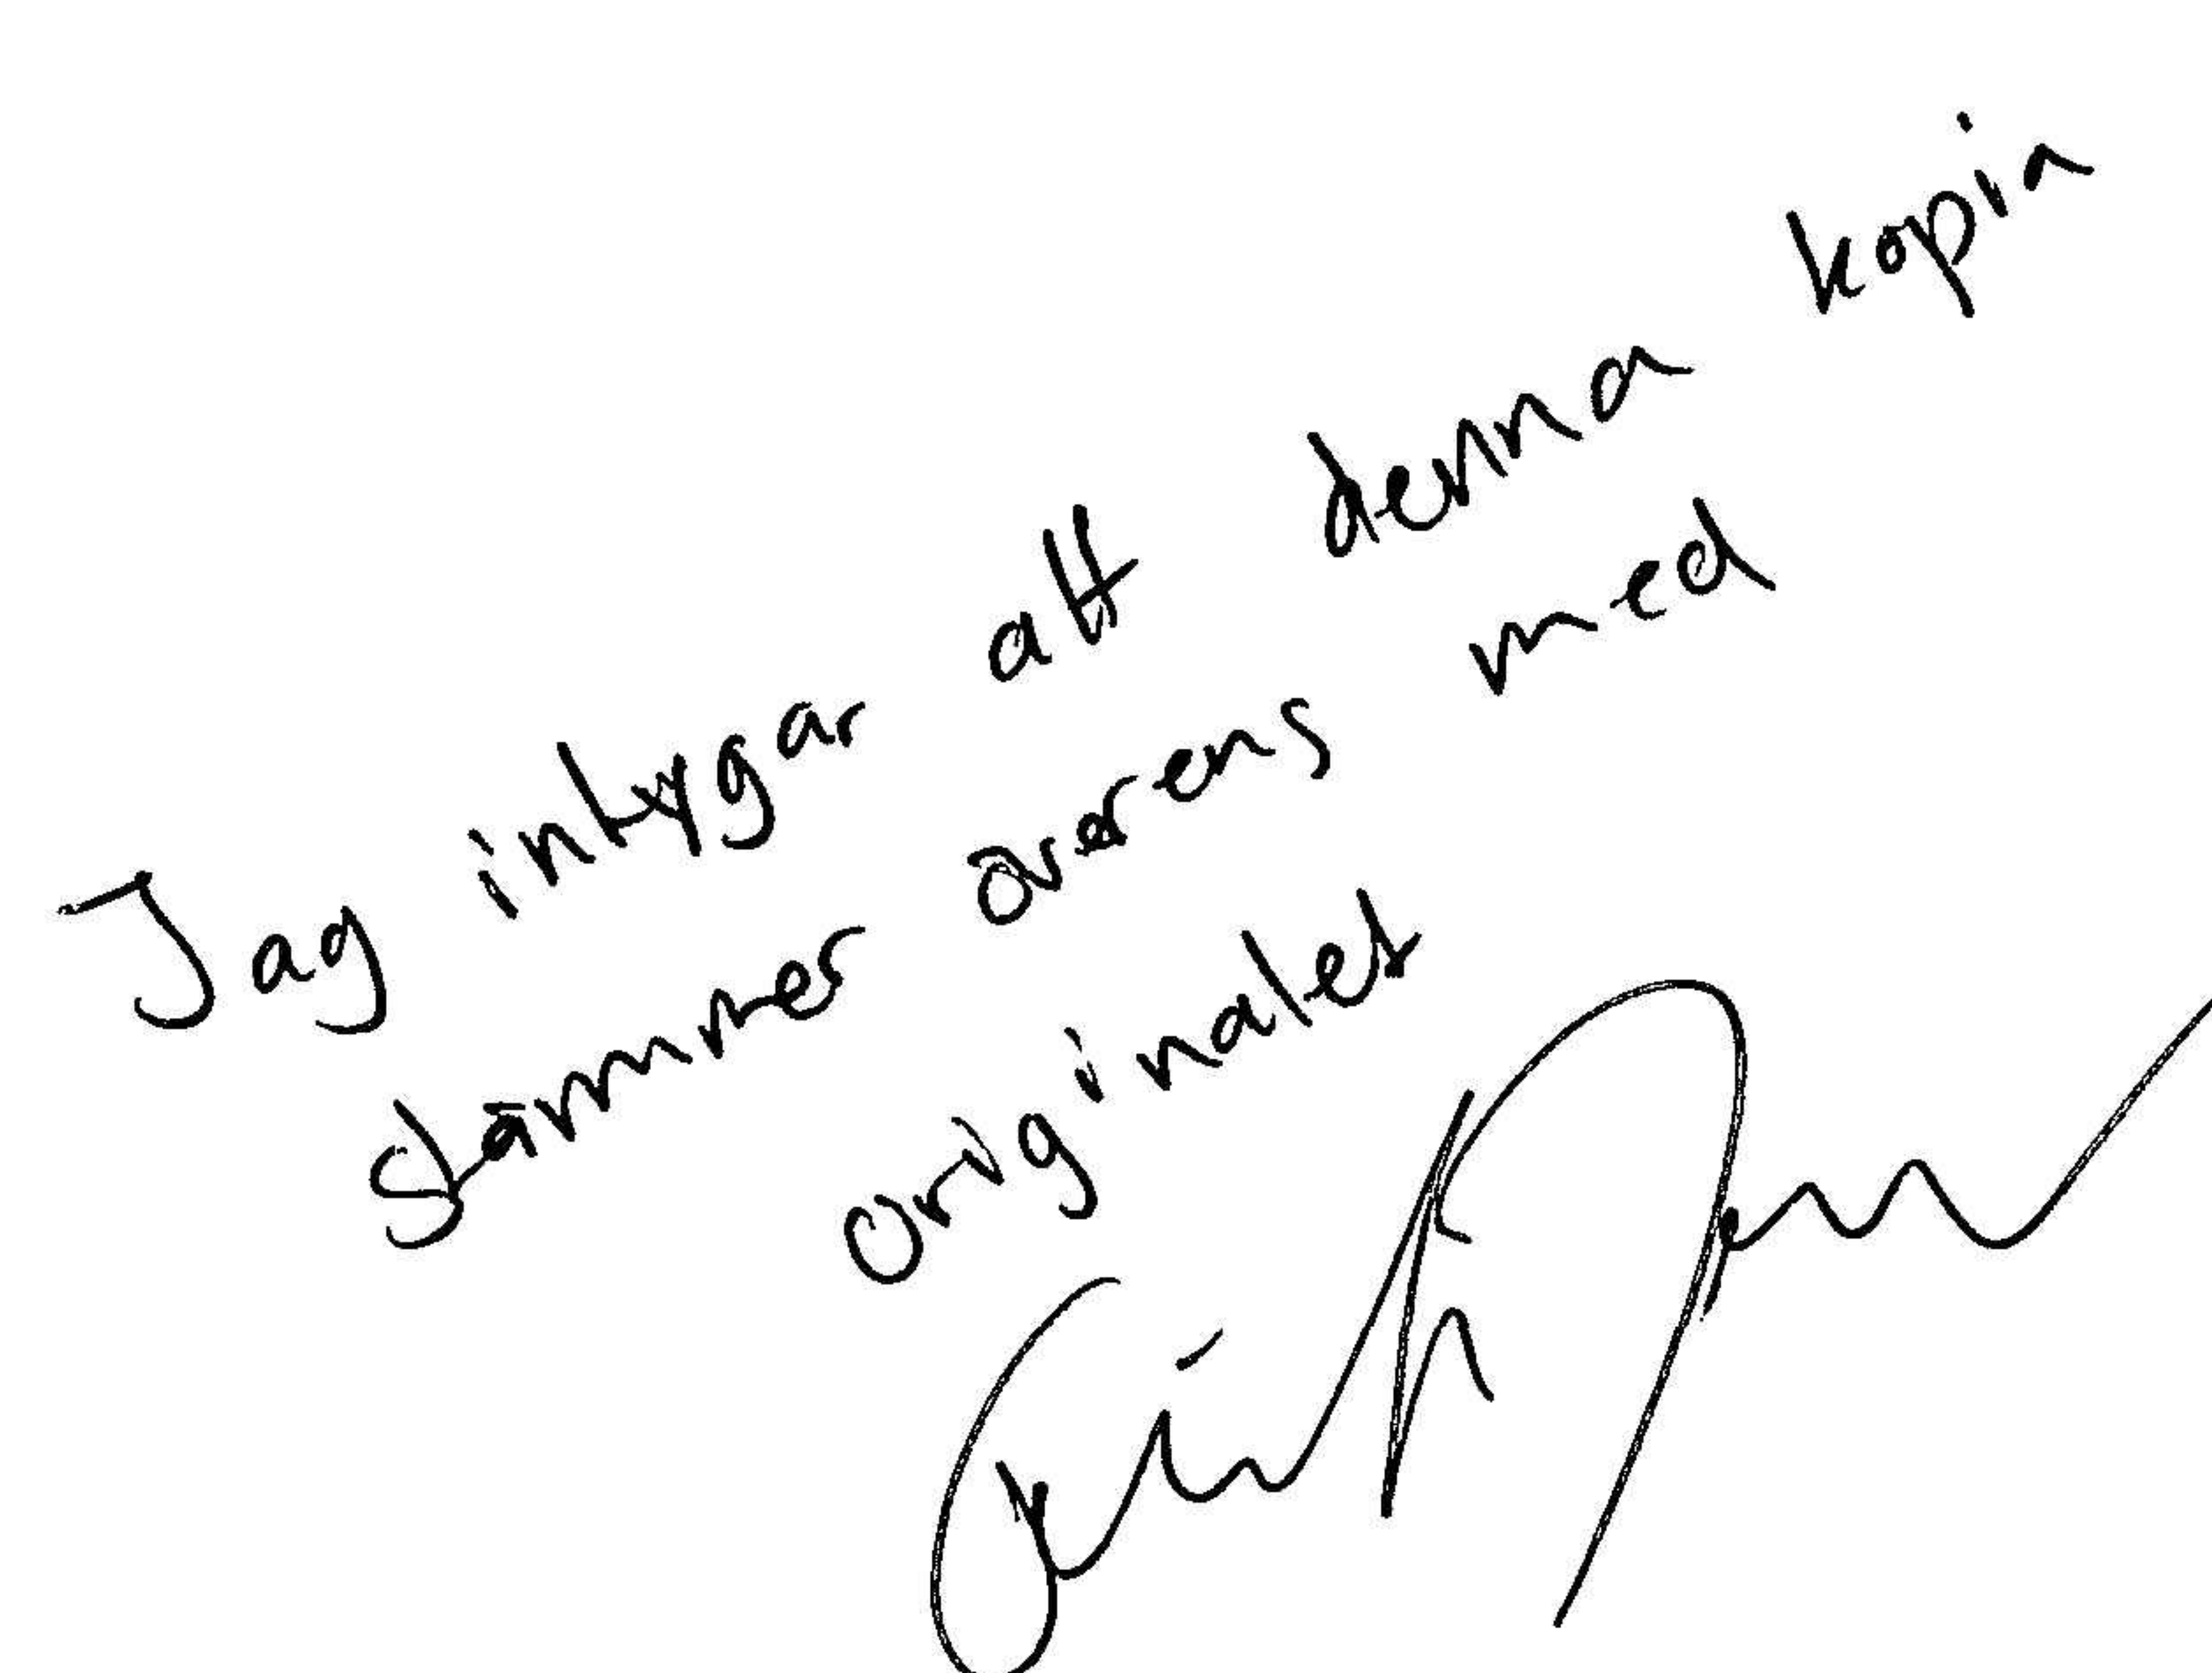 Jag intygar att denna kopia
stämmer överens med
originalet